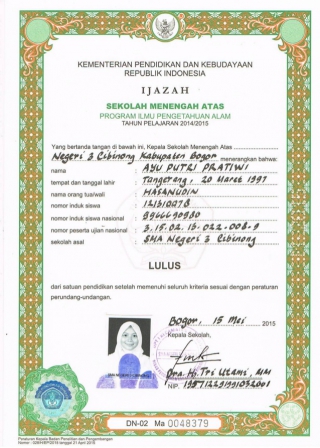 KEMENTERIAN PENDIDIKAN DAN KEBUDAYAAN
REPUBLIK INDONESIA
IJAZAH
SEKOLAH MENENGAH ATAS
PROGRAM ILMU PENGETAHUAN ALAM
TAHUN PELAJARAN 2014/2015
Yang bertanda tangan di bawah ini, Kepala Sekolah Menengah Atas
Negeri 3 Cibinong Kabupaten Bogor menerangkan bahwa:
nama AYU PUTRI PRATIWI
tempat dan tanggal lahir Tangerang, 20 Maret 1997
nama orang tua/wali HASANUDIN
nomor induk siswa 121310278
nomor induk siswa nasional 9966690980
nomor peserta ujian nasional 3.15.02.16.022.008.9
sekolah asal SMA Negeri 3 Cibinong
LULUS
dari satuan pendidikan setelah memenuhi seluruh kriteria sesuai dengan peraturan
perundang-undangan.
Bogor, 15 Mei 2015
Kepala Sekolah,
Dra. Hj. Tri Utami, MM
NIP.
DN-02 Ma 0048379